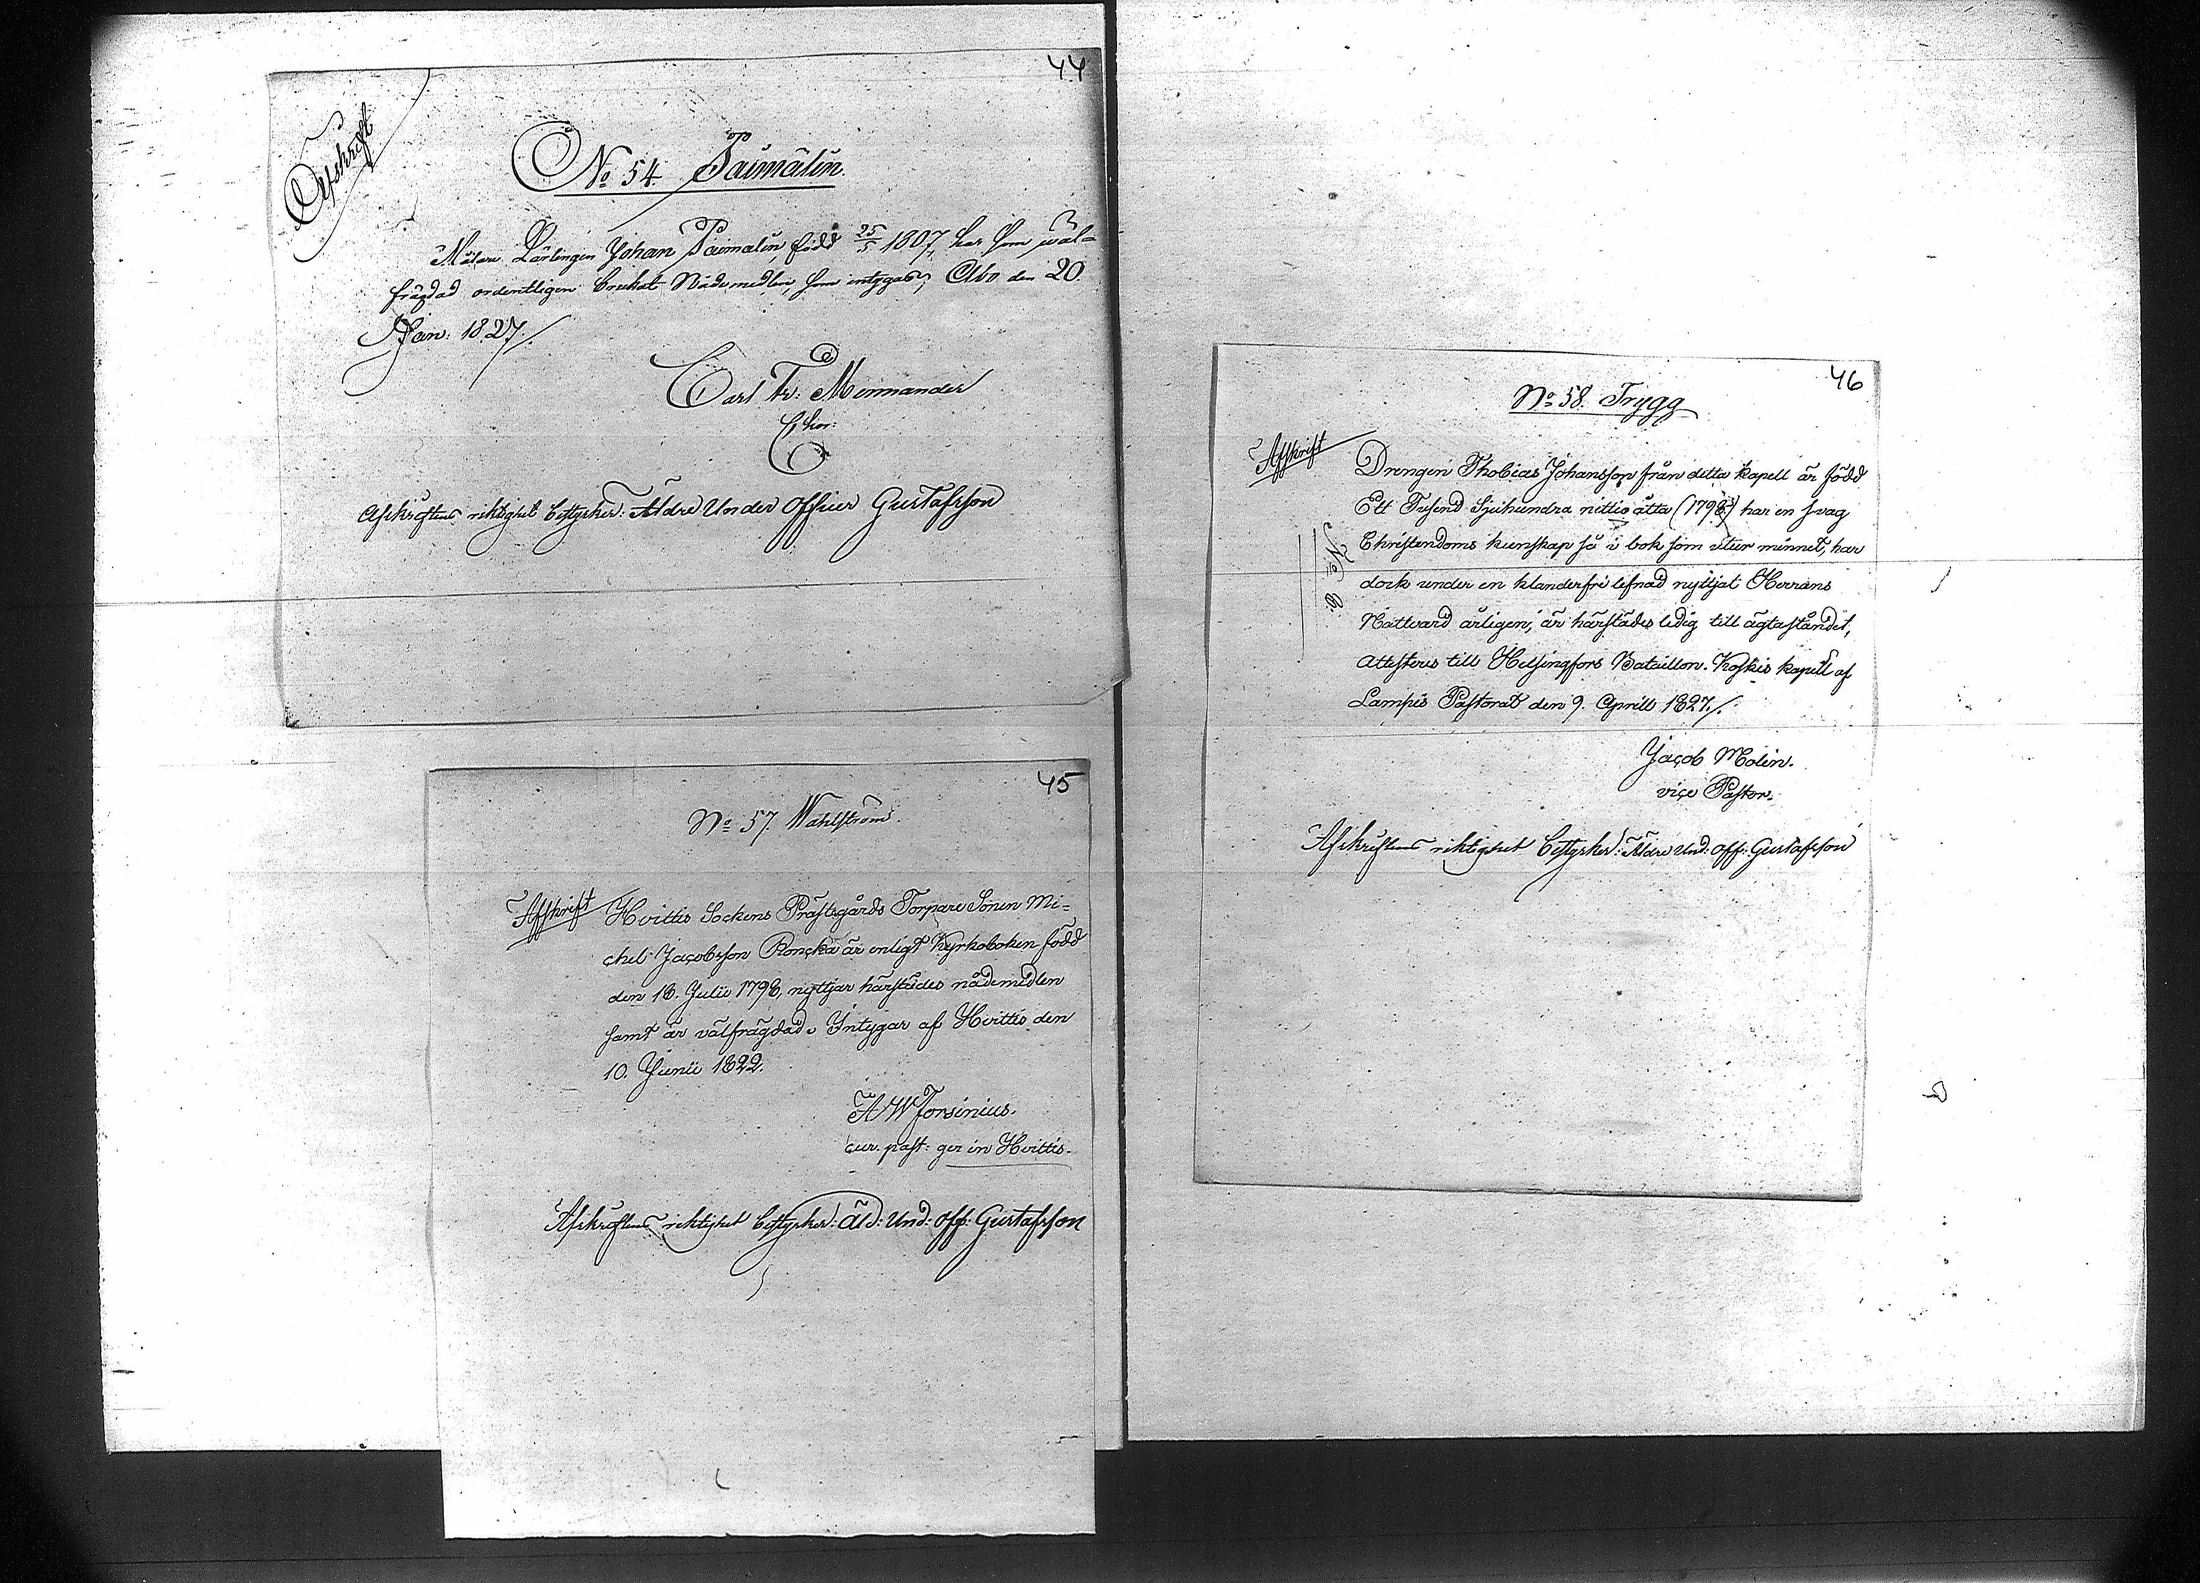 44
Afskrift
No 54. Paimalin.
Målare Lärlingen Johan Paimalin, född 25/5 1807, har som wäl-
frägdad ordentligen brukat Nådemedlen, som intygas; Åbo den 20
Jan: 1827./.
Carl Fr: Mennander
Afskriftens riktighet bestyrker: Äldre Under Officer Gustafsson
45
No 57. Wahlström.
Afskrift
Hvittis Sockens Prästegårds Torpare Sonen Mi-
chel Jacobsson Ronckä är enligt Kyrkoboken född
den 18. Julii 1798, nyttjar härstädes nådemedlen
samt är välfrägdad. Intygar af Hvittis den
10. Junii 1822.
A W Forsinius.
cur. past: ger in Hvittis.
Afskriftens riktighet bestyrker: Äld: Und: Off: Gustafsson
46
No 58. Trygg
Afskrift
No 8.
Drengen Thobias Johansson från detta kapell är född
Ett Tusend Sjuhundra nittio åtta (1798) har en svag
Christendoms kunskap så i bok som utur minnet, har
dock under en klanderfri lefnad nyttjat Herrans
Nattvard årligen, är härstädes ledig till ägtaståndet,
Attesteras till Helsingfors Bataillon. Koskis kapell af
Lampis Pastorat den 9. Aprill 1827./.
Jacob Molin.
vice Pastor.
Afskriftens riktighet bestyrker: Äldre Und: Off: Gustafsson